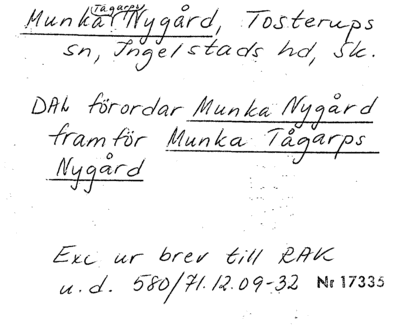 Munka (Tågarps) Nygård, Tosterups
sn, Ingelstads hd, Sk.
DAL förordar Munka Nygård
framför Munka Tågarps
Nygård
Exc ur brev till RAK
u.d. 580/71.12.09-32 Nr 17335